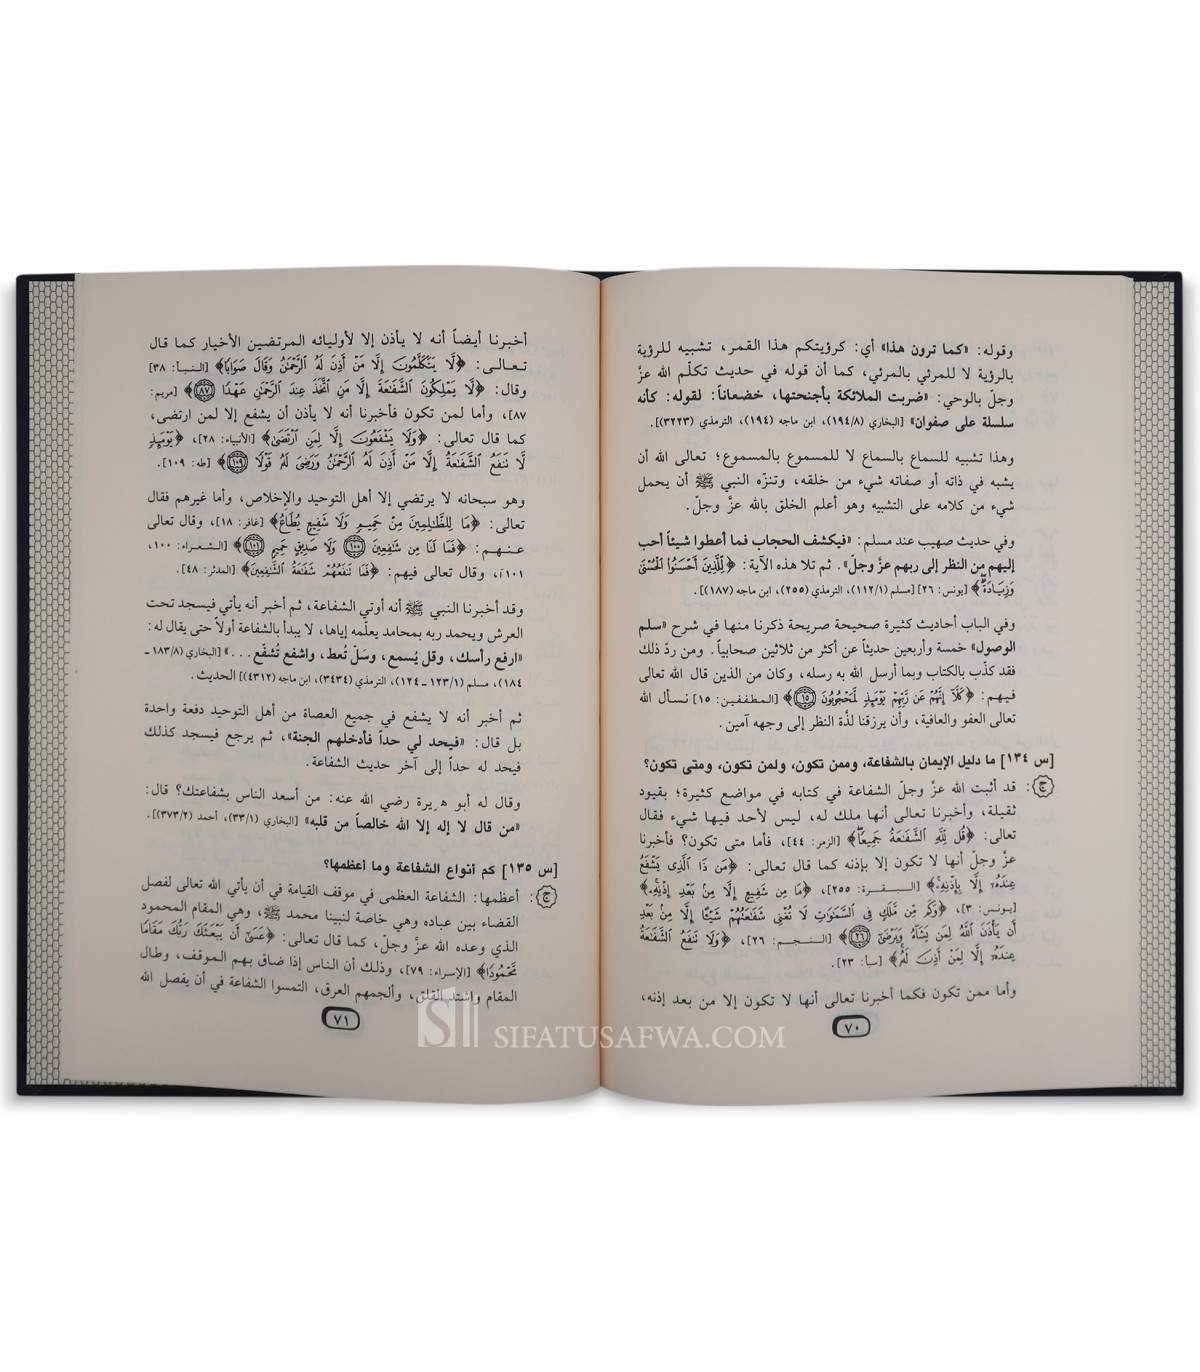 وقوله: «كما ترون هذا» أي: كرؤيتكم هذا القمر، تشبيه للرؤية
بالرؤية لا للمرئي بالمرئي، كما أن قوله في حديث تكلّم الله عزَّ
وجلّ بالوحي: «ضربت الملائكة بأجنحتها، خضعاناً: لقوله: كأنه
سلسلة على صفوان» [البخاري (١٩٤/٨)، ابن ماجه (١٩٤)، الترمذي (٣٢٢٣)].
وهذا تشبيه للسماع بالسماع لا للمسموع بالمسموع؛ تعالى الله أن
يشبه في ذاته أو صفاته شيء من خلقه، وتنزّه النبي ﷺ أن يحمل
شيء من كلامه على التشبيه وهو أعلم الخلق بالله عزَّ وجلّ.
وفي حديث صهيب عند مسلم: «فيكشف الحجاب فما أعطوا شيئاً أحب
إليهم من النظر إلى ربهم عزَّ وجلّ». ثم تلا هذه الآية: ﴿لِّلَّذِينَ أَحْسَنُوا۟ الْحُسْنَىٰ
وَزِيَادَةٌ﴾ [يونس: ٢٦] [مسلم (١١٢/١)، الترمذي (٢٥٥)، ابن ماجه (١٨٧)].
وفي الباب أحاديث كثيرة صحيحة صريحة ذكرنا منها في شرح «سلم
الوصول» خمسة وأربعين حديثاً عن أكثر من ثلاثين صحابياً. ومن ردّ ذلك
فقد كذّب بالكتاب وبما أرسل الله به رسله، وكان من الذين قال الله تعالى
فيهم: ﴿كَلَّآ إِنَّهُمْ عَن رَّبِّهِمْ يَوْمَئِذٍ لَّمَحْجُوبُونَ ١٥﴾ [المطففين: ١٥] نسأل الله
تعالى العفو والعافية، وأن يرزقنا لذَّة النظر إلى وجهه آمين.
[س ١٣٤] ما دليل الإيمان بالشفاعة، وممن تكون، ولمن تكون، ومتى تكون؟
ج: قد أثبت الله عزَّ وجلّ الشفاعة في كتابه في مواضع كثيرة؛ بقيود
ثقيلة، وأخبرنا تعالى أنها ملك له، ليس لأحد فيها شيء فقال
تعالى: ﴿قُل لِّلَّهِ الشَّفَٰعَةُ جَمِيعًا﴾ [الزمر: ٤٤]، فأما متى تكون؟ فأخبرنا
عزَّ وجلّ أنها لا تكون إلا بإذنه كما قال تعالى: ﴿مَن ذَا الَّذِى يَشْفَعُ
عِندَهُۥٓ إِلَّا بِإِذْنِهِۦ﴾ [البقرة: ٢٥٥]، ﴿مَا مِن شَفِيعٍ إِلَّا مِنۢ بَعْدِ إِذْنِهِۦ﴾
[يونس: ٣]، ﴿وَكَم مِّن مَّلَكٍ فِى السَّمَٰوَٰتِ لَا تُغْنِى شَفَٰعَتُهُمْ شَيْـًٔا إِلَّا مِنۢ بَعْدِ
أَن يَأْذَنَ اللَّهُ لِمَن يَشَآءُ وَيَرْضَىٰٓ ٢٦﴾ [النجم: ٢٦]، ﴿وَلَا تَنفَعُ الشَّفَٰعَةُ
عِندَهُۥٓ إِلَّا لِمَنْ أَذِنَ لَهُۥ﴾ [سبأ: ٢٣].
وأما ممن تكون فكما أخبرنا تعالى أنها لا تكون إلا من بعد إذنه،
٧٠
أخبرنا أيضاً أنه لا يأذن إلا لأوليائه المرتضين الأخيار كما قال
تعالى: ﴿لَّا يَتَكَلَّمُونَ إِلَّا مَنْ أَذِنَ لَهُ الرَّحْمَٰنُ وَقَالَ صَوَابًا﴾ [النبأ: ٣٨]
وقال: ﴿لَّا يَمْلِكُونَ الشَّفَٰعَةَ إِلَّا مَنِ اتَّخَذَ عِندَ الرَّحْمَٰنِ عَهْدًا ٨٧﴾ [مريم:
٨٧]، وأما لمن تكون فأخبرنا أنه لا يأذن أن يشفع إلا لمن ارتضى،
كما قال تعالى: ﴿وَلَا يَشْفَعُونَ إِلَّا لِمَنِ ارْتَضَىٰ﴾ [الأنبياء: ٢٨]، ﴿يَوْمَئِذٍ
لَّا تَنفَعُ الشَّفَٰعَةُ إِلَّا مَنْ أَذِنَ لَهُ الرَّحْمَٰنُ وَرَضِىَ لَهُۥ قَوْلًا ١٠٩﴾ [طه: ١٠٩].
وهو سبحانه لا يرتضي إلا أهل التوحيد والإخلاص، وأما غيرهم فقال
تعالى: ﴿مَا لِلظَّٰلِمِينَ مِنْ حَمِيمٍ وَلَا شَفِيعٍ يُطَاعُ﴾ [غافر: ١٨]، وقال تعالى
عنهم: ﴿فَمَا لَنَا مِن شَٰفِعِينَ ١٠٠ وَلَا صَدِيقٍ حَمِيمٍ ١٠١﴾ [الشعراء: ١٠٠،
١٠١]، وقال تعالى فيهم: ﴿فَمَا تَنفَعُهُمْ شَفَٰعَةُ الشَّٰفِعِينَ﴾ [المدثر: ٤٨].
وقد أخبرنا النبي ﷺ أنه أوتي الشفاعة، ثم أخبر أنه يأتي فيسجد تحت
العرش ويحمد ربه بمحامد يعلّمه إياها، لا يبدأ بالشفاعة أولاً حتى يقال له:
«ارفع رأسك، وقل يُسمع، وسَلْ تُعط، واشفع تُشفّع...» [البخاري (١٨٣/٨ ـ
١٨٤)، مسلم (١٢٣/١ ـ ١٢٤)، الترمذي (٣٤٣٤)، ابن ماجه (٤٣١٢)] الحديث.
ثم أخبر أنه لا يشفع في جميع العصاة من أهل التوحيد دفعة واحدة
بل قال: «فيحد لي حداً فأدخلهم الجنة»، ثم يرجع فيسجد كذلك
فيحد له حداً إلى آخر حديث الشفاعة.
وقال له أبو هريرة رضي الله عنه: من أسعد الناس بشفاعتك؟ قال:
«من قال لا إله إلا الله خالصاً من قلبه» [البخاري (٣٣/١)، أحمد (٣٧٣/٢)].
[س ١٣٥] كم أنواع الشفاعة وما أعظمها؟
ج: أعظمها: الشفاعة العظمى في موقف القيامة في أن يأتي الله تعالى لفصل
القضاء بين عباده وهي خاصة لنبينا محمد ﷺ، وهي المقام المحمود
الذي وعده الله عزَّ وجلّ، كما قال تعالى: ﴿عَسَىٰٓ أَن يَبْعَثَكَ رَبُّكَ مَقَامًا
مَّحْمُودًا﴾ [الإسراء: ٧٩]، وذلك أن الناس إذا ضاق بهم الموقف، وطال
المقام واشتد القلق، وألجمهم العرق، التمسوا الشفاعة في أن يفصل الله
٧١
SIFATUSAFWA.COM